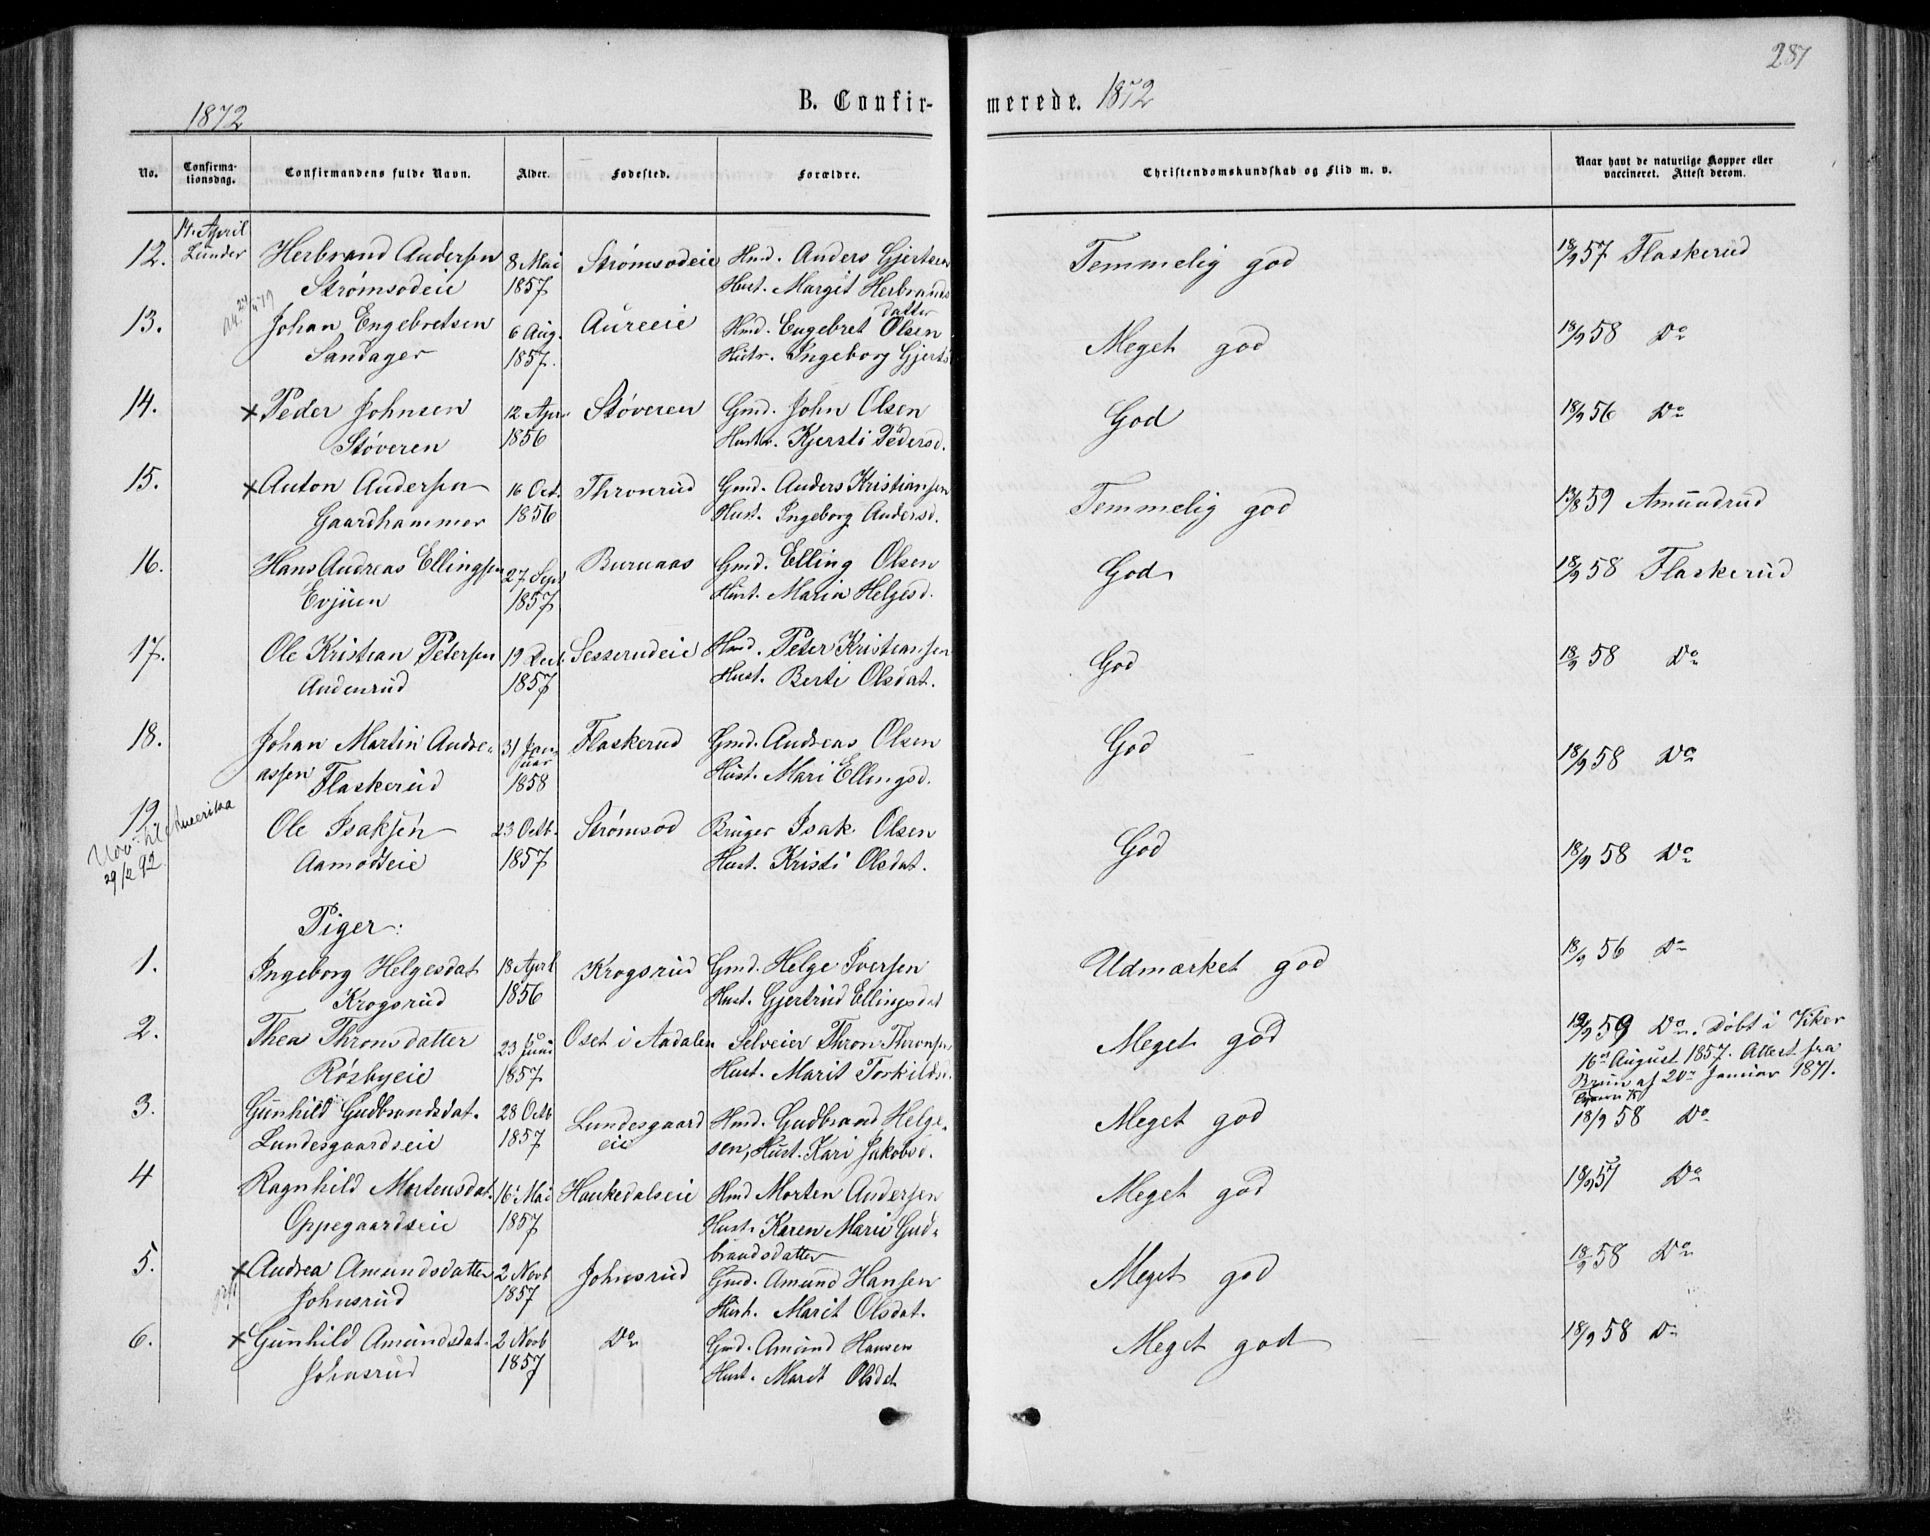 287
1872
B. Confirmerede. 1872
No.
Confirmationsdag.
Confirmandens fulde Navn.
Alder.
Fødested.
Forældre.
Christendomskundskab og Flid m. v.
Naar havt de naturlige Kopper eller vaccineret. Attest derom.
14. April
Lunder
12. Herbrand Andersen 8 Mai Strømsodeie Hmd. Anders Gjertsen Temmelig god 18/9 57 Flaskerud
Strømsodeie 1857 Hust. Margit Herbrands
datter
13. Johan Engebretsen 6 Aug. Aureeie Hmd. Engebret Olsen Meget god 18/9 58 Do
Sandager 1857. Hustr. Ingeborg Gjerts
14. × Peder Johnsen 12 Apr. Støveren Gmd. John Olsen God 18/9 56 Do
Støveren 1856 Hustr. Kjersti Pedersd.
15. × Anton Andersen 16 Oct. Thronrud Gmd. Anders Kristiansen Temmelig god 13/8 59 Amundrud
Gaardhammer 1856 Hust. Ingeborg Andersd.
16. Hans Andreas Ellingsen 27 Sept Burnaas Gmd. Elling Olsen God 18/9 58 Flaskerud
Evjuen 1857 Hust. Maria Helgesd.
17. Ole Kristian Petersen 19 Dec. Sesserudeie Hmd. Peter Kristiansen God 18/9 58 Do
Andenrud 1857 Hust. Berti Olsdat.
18. Johan Martin Andre- 31 Jan- Flaskerud Gmd. Andreas Olsen God 18/9 58 Do
assen Flaskerud uar 1858 Hust. Mari Ellingsd.
19. Ole Isaksen 23 Octb. Strømsod Bruger Isak Olsen God 18/9 58 Do
Aamodteie 1857 Hust. Kristi Olsdat.
til Amerika
29/2 92
Piger:
1. Ingeborg Helgesdat 18 April Krogsrud Gmd. Helge Iversen Udmærket god 18/9 56 Do
Krogsrud 1856 Hust. Gjertrud Ellingsdat
2. Thea Thronsdatter 23 Juni Oset i Aadalen Selveier Thron Thronsen Meget god 19/9 59 Do. Døbt i Viker
Røsbyeie 1857 Hust. Marit Torkildsd. 16de August 1857. Attest fra
Bruun af 20de Januar 1871.
3. Gunhild Gudbrandsdat. 28 Octb Lundesgaard Hmd. Gudbrand Helge- Meget god 18/9 58 Do
Lundesgaardseie 1857 eie sen, Hust. Kari Jakobsd.
4 Ragnhild Mortensdat. 16. Mai Haukedalseie Hmd Morten Andersen Meget god 19/9 57 Do
Oppegaardseie 1857 Hust. Karen Marie Gud-
brandsdatter
5. × Andrea Amundsdatter 2 Novb Johnsrud Gmd. Amund Hansen Meget god 18/9 58 Do
Johnsrud 1857 Hust. Marit Olsdat.
6. × Gunhild Amundsdat. 2 Novb Do Gmd. Amund Hansen Meget god 18/9 58 Do
Johnsrud 1857 Hust. Marit Olsdat